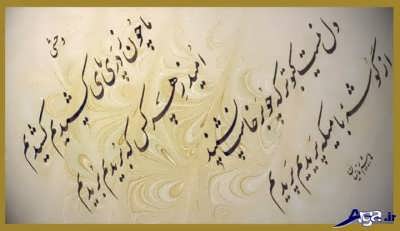 وحشی
ما چون ز دری پای کشیدیم کشیدیم
امید ز هر کس که بریدیم بریدیم
دل نیست کبوتر که چو برخاست نشیند
از گوشه بامیکه پریدیم پریدیم
Aga.ir